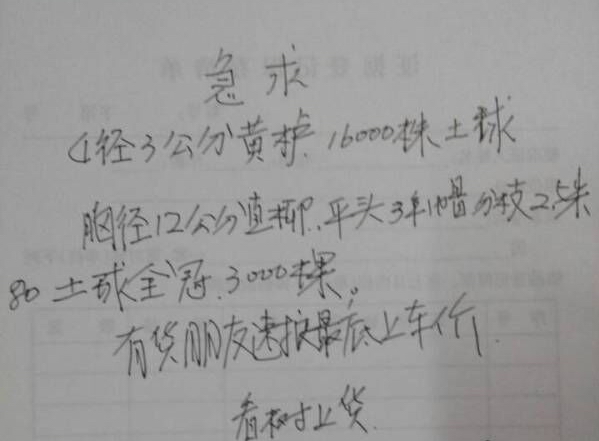 急求
径3公分黄栌.16000株土球
胸径12公分直柳.平头3年帽分枝2.5米
80土球全冠.3000棵。
有货朋友速报最底上车价.
看树上货.